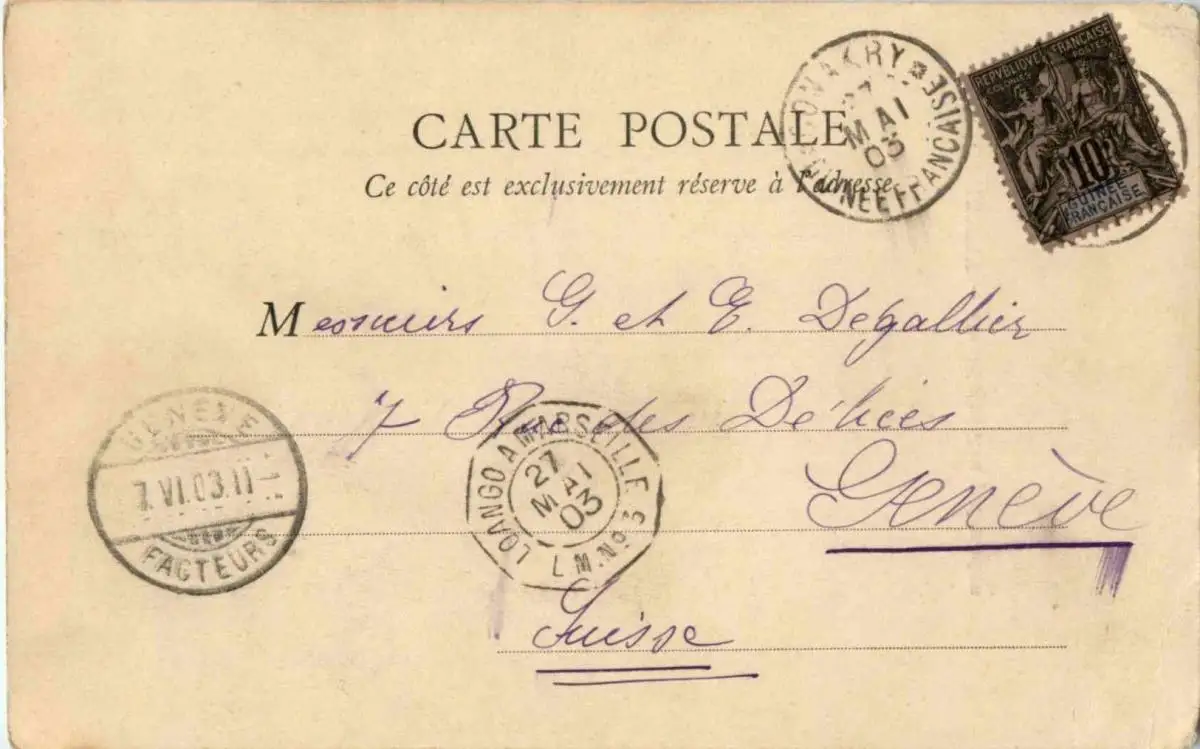 CARTE POSTALE
Ce côté est exclusivement réservé à l'adresse.
CONAKRY
27
MAI
03
GUINÉE FRANÇAISE
REPUBLIQUE FRANÇAISE
COLONIES POSTES
10
GUINÉE
FRANÇAISE
Messieurs G. et E. Degallier
7 Rue des Délices
Genève
Suisse
GENÈVE
7.VI.03.11
FACTEURS
LOANGO A MARSEILLE
27
MAI
03
L.M. Nº 3